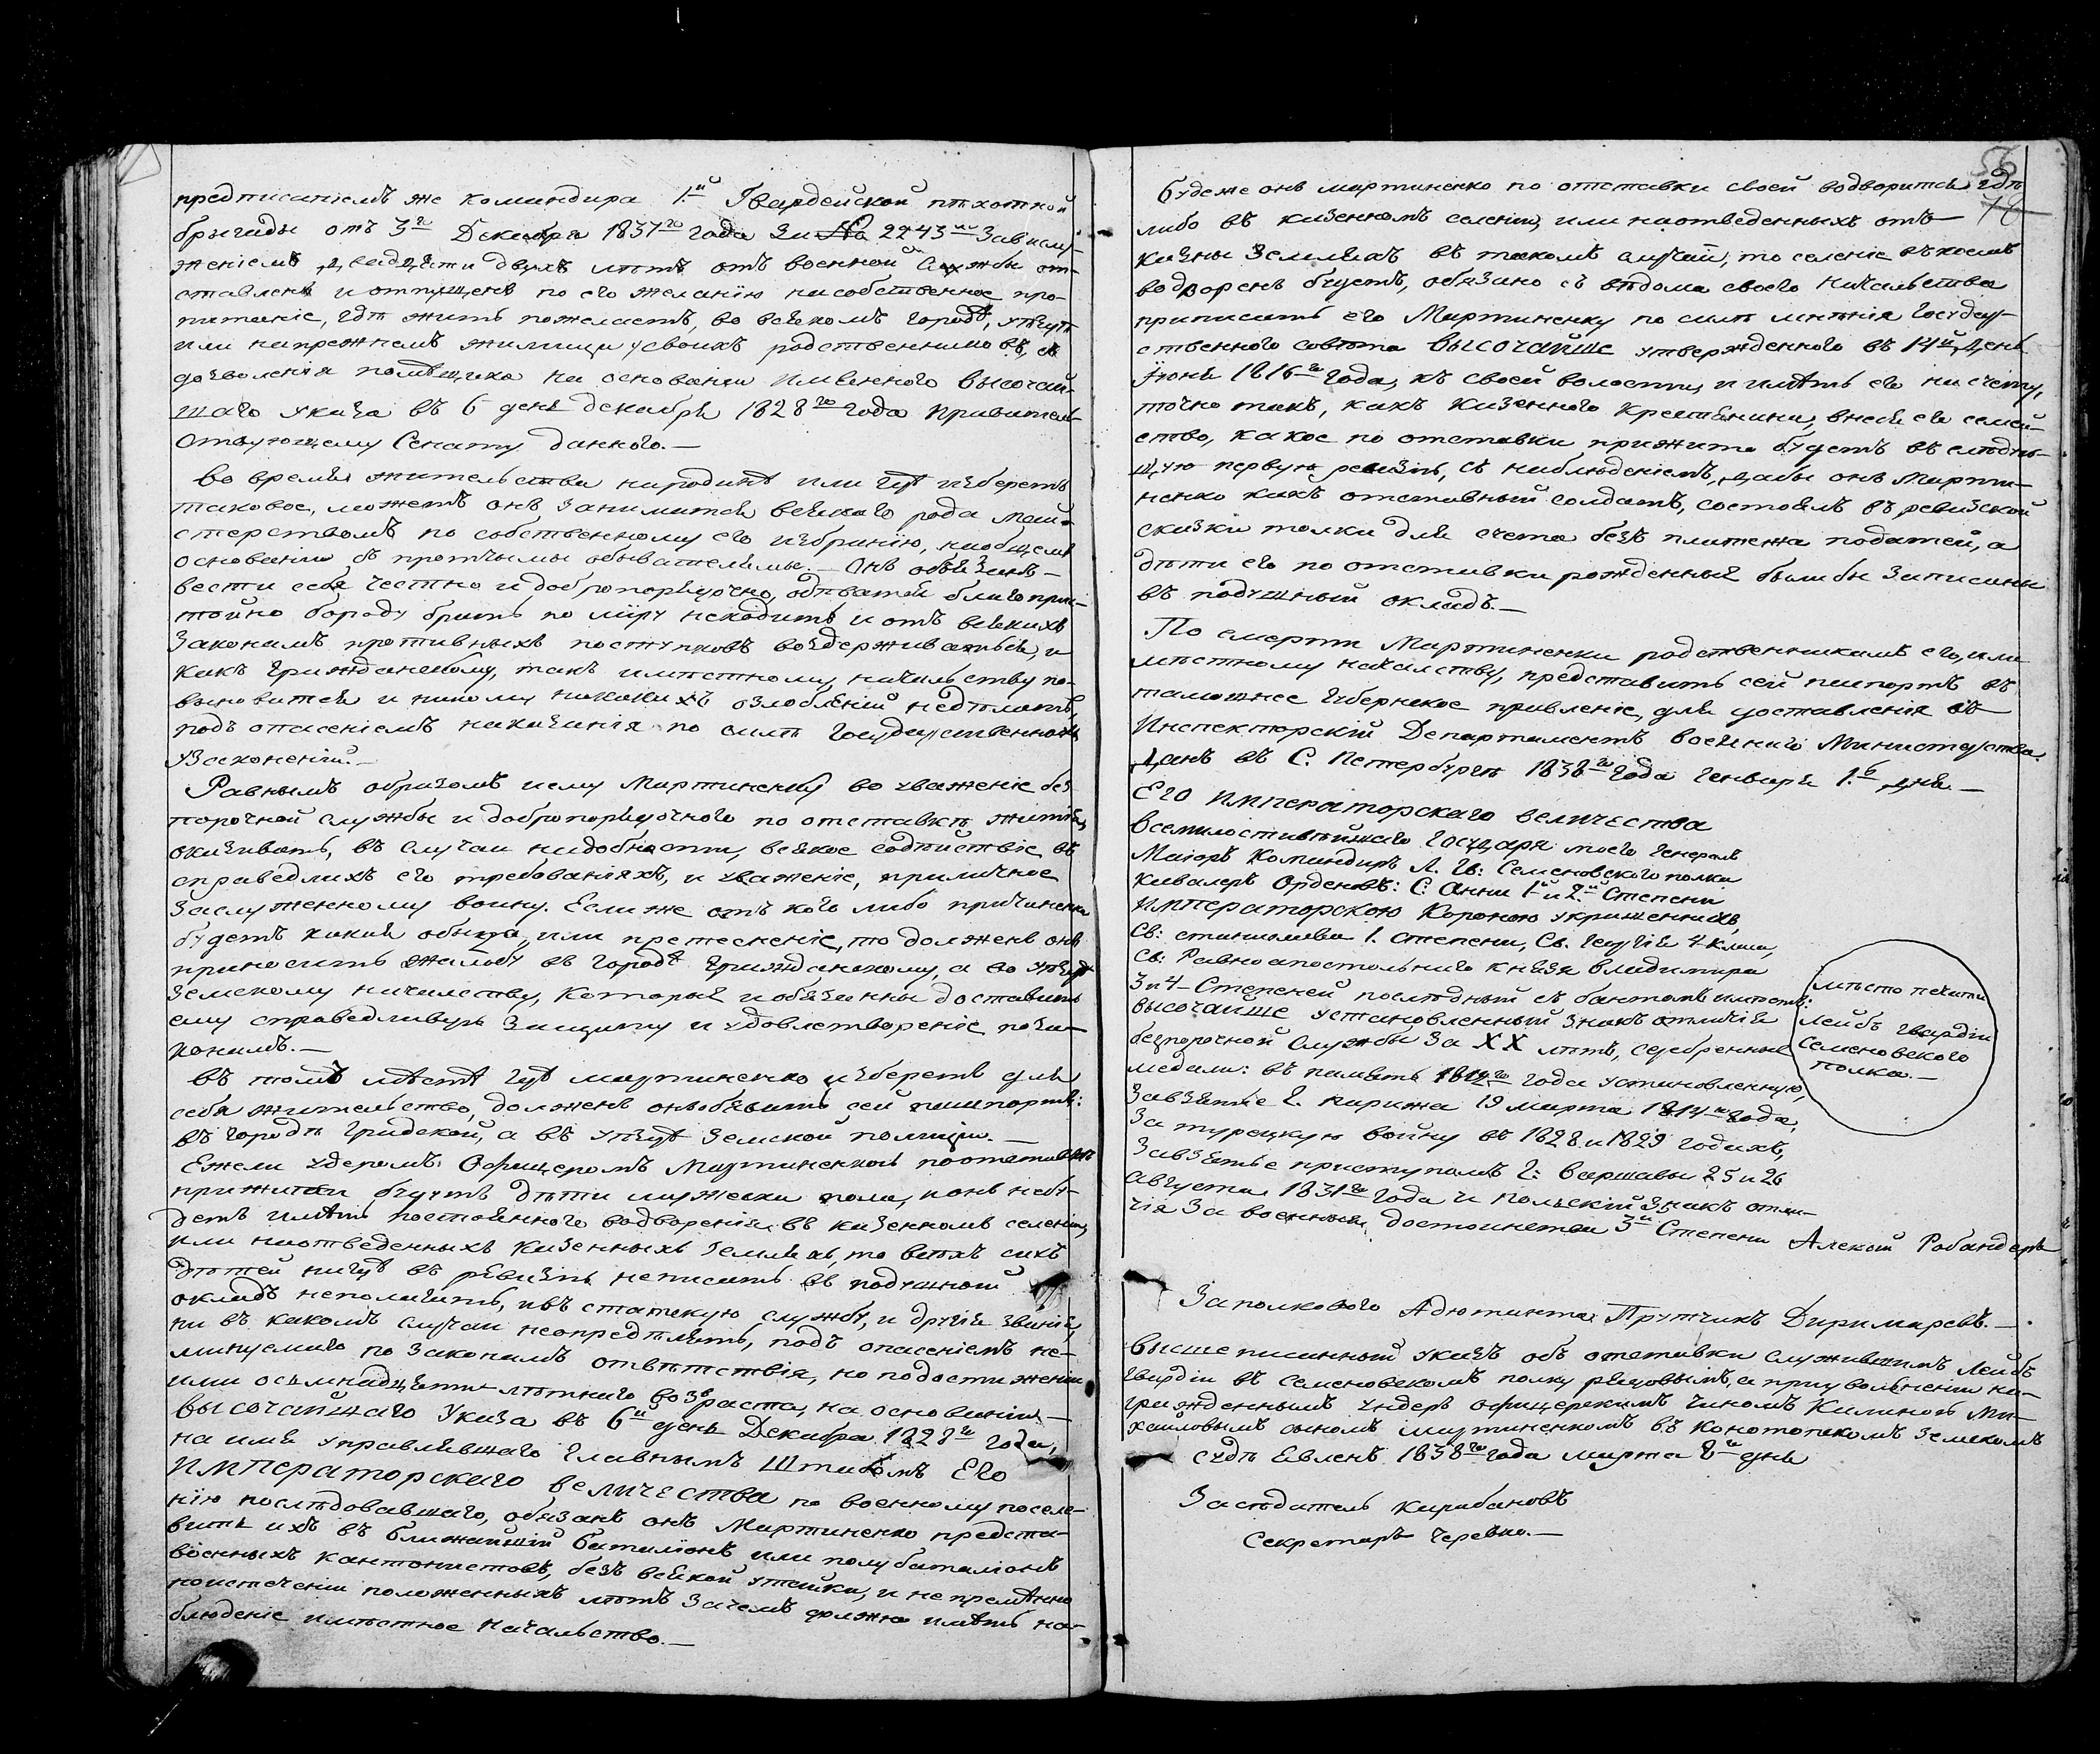 предписаніемъ же командира 1.й Гвардейской пѣхотной
бригады отъ 3го Декабря 1837го года за No 2243мъ Завыслу-
женіемъ двадцати двухъ лѣтъ отъ военной службы от-
ставленъ и отпущенъ по его желанію насобственное про-
питаніе, гдѣ жить пожелаетъ, во всякомъ городѣ, уѣздѣ
или напрежнемъ жилищи усвоихъ родственниковъ, съ
дозволенія помѣщика на основаніи имяннаго высочай-
шаго указа въ 6 день декабря 1828го года Правитель-
ствующему Сенату даннаго.—
Во время жительства народинѣ или гдѣ изберетъ
таковое, можетъ онъ заниматся всякаго рода маи-
стерствомъ по собственному его избранію, наобщемъ
основаніи съ протчымы обывателямы.— Онъ обязанъ—
вести себя честно и добропорядочно, одѣватся благопри-
стойно бороду брить по міру неходить и отъ всякихъ
законамъ противныхъ поступковъ воздерживаться, и
какъ гражданскому, такъ имѣстному, начальству по-
выноватся и никому никакихъ озлобленій недѣлать,
подъ опасеніемъ наказанія по силѣ Государственныхъ
Узаконеній.—
Равнымъ образомъ иему Мартиненку во уваженіе без-
порочной службы и добропорядочнаго по отставкѣ житія,
оказивать, въ случаи надобности, всякое содѣйствіе въ
справедлихъ его требованіяхъ, и уваженіе, приличное
заслуженному воину. Если же отъ кого либо причинена
будетъ какая обыда, или претесненіе, то долженъ онъ
приносить жалобу въ городѣ гражданскому, а во уѣздѣ
земскому начальству, которыя иобязанны доставить
ему справедливую защиту и удовлетвореніе поза-
конамъ.—
Въ томъ мѣстѣ гдѣ мартиненко изберетъ для
себя жительство, долженъ онъобявить сей пашпортъ:
въ городѣ градской, а въ уѣздѣ земской полиціи.—
Ежели ундеромъ Офицеромъ Мартиненкомъ поотставкѣ
прижити будутъ дѣти мужеска пола, ионъ небу-
детъ имѣть постояннаго водворенія въ казенномъ селеніи,
или наотведенныхъ казенныхъ земляхъ, то всѣхъ сихъ
дѣтей нигдѣ въ ревизію неписать въ подушный
окладъ неполагить, ивъ статскую службу, и другія званія,
ни въ какомъ случаи неопредѣлять, подъ опасеніемъ не-
минуемаго по законамъ отвѣтствія, но подостиженіи
ими осьмнадцати лѣтняго возраста, на основаніи—
высочайшаго Указа въ 6й день Декабра 1828го года,
на имя управлявшаго главнымъ Штабомъ Его
Императорскаго величества по военному поселе-
нію послѣдовавшаго, обязанъ онъ Мартиненко предста-
вить ихъ въ ближайшій баталіонъ или полубаталіонъ
военныхъ кантонистовъ, безъ всякой утайки, и непремѣнно
поистеченіи положенныхъ лѣтъ Зачемъ должно имѣть на-
блюденіе имѣстное Начальство.—
56
78
Будеже онъ мартиненко по отставки своей водворится гдѣ
либо въ казенномъ селеніи, или наотведенныхъ отъ—
казны Земляхъ въ такомъ случаи, то селеніе въкоемъ
водворенъ будетъ, обязано съ вѣдома своего Начальства
приписать его Мартиненку по силѣ мнѣнія Государ-
ственного совѣта Высочайше утвержденного въ 14й день
Іюня 1816го года, къ своей волости, и имѣть его насчету,
точно такъ, какъ казенного Крестянина, внеся его семей-
ство, какое по отставки прижито будетъ въ слѣдую-
щую первую ревизію, съ наблюденіемъ, дабы онъ Марти-
ненко какъ отставный солдатъ, состоялъ въ ревизской
сказки толки для счета безъ платежа податей, а
дѣти его по отставки рожденныя былибы записаны
въ подушный окладъ.—
По смерти Мартиненки родственникамъ его, или
мѣстному началству, представить сей пашпортъ въ
таможнее Губернское правленіе, для доставленія въ
Инспекторскій Департаментъ военнаго Министерства.
Данъ въ С. Петербургѣ 1838го года генваря 1.го дня.—
Его Императорскаго величества
всемилостивѣйшаго государя моего генералъ
Маіоръ Командиръ Л. Гв: Семеновского полка
Кавалеръ Орденовъ: С. Анни 1й и 2.й Степени
Императорскою Короною украшенныхъ,
Св: станислава 1. степени, Св. Георгія 4 класа,
Св: Равноапостольнаго князя владимира
3 и 4— Степеней послѣдный съ бантомъ имѣетъ:
высочайше установленный знакъ отличія
безпорочной службы за XX лѣтъ, серебренные
медали: въ память 1812го года установленную,
завзятіе г. парижа 19 марта 1814го года,
за турецкую войну въ 1828 и 1829 годахъ,
завзятье приступомъ г: варшавы 25 и 26
августа 1831го года и польскій знакъ отли-
чія за военныя достоинства 3й Степени Алексѣй Рабандеръ
мѣсто печати
лейбъ гвардіи
Семеновского
полка.—
Заполкового Адютанта Прутчикъ Диримаревъ.—
Вышеписанный указъ объ отставки служившимъ Лейбъ
гвардіи въ Семеновскомъ полку рядовымъ, а приувольненіи на-
гражденнымъ ундеръ офицерскимъ чиномъ Калиномъ Ми-
хайловымъ сыномъ мартиненкомъ въ конотопскомъ земскомъ
судѣ Евленъ 1838го года марта 8го дня
Засѣдатель Карабановъ
Секретаръ Черевко.—